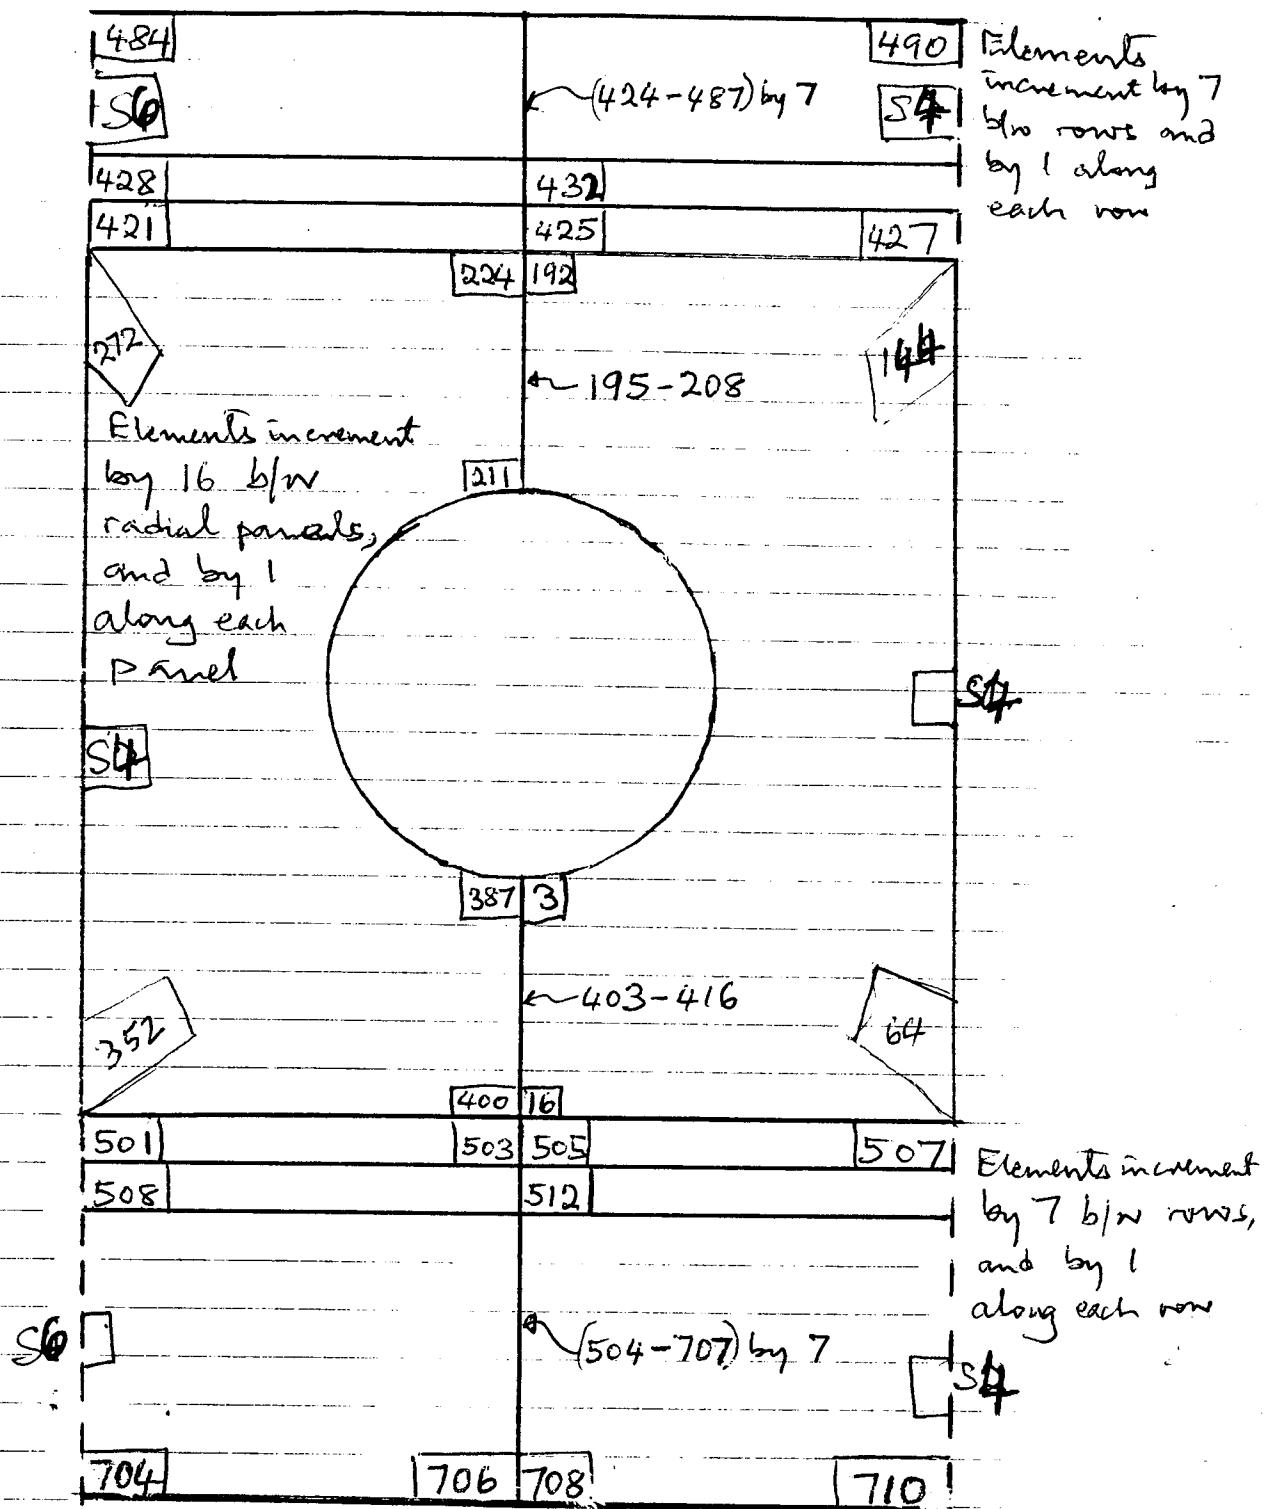 484
490
Elements
increment by 7
b/w rows and
by 1 along
each row
S6
(424-487) by 7
S4
428
432
421
425
427
224
192
272
144
195-208
Elements increment
by 16 b/w
radial panels,
and by 1
along each
panel
211
S4
S4
387
3
403-416
352
64
400
16
501
503
505
507
Elements increment
by 7 b/w rows,
and by 1
along each row
508
512
S6
(504-707) by 7
S4
704
706
708
710